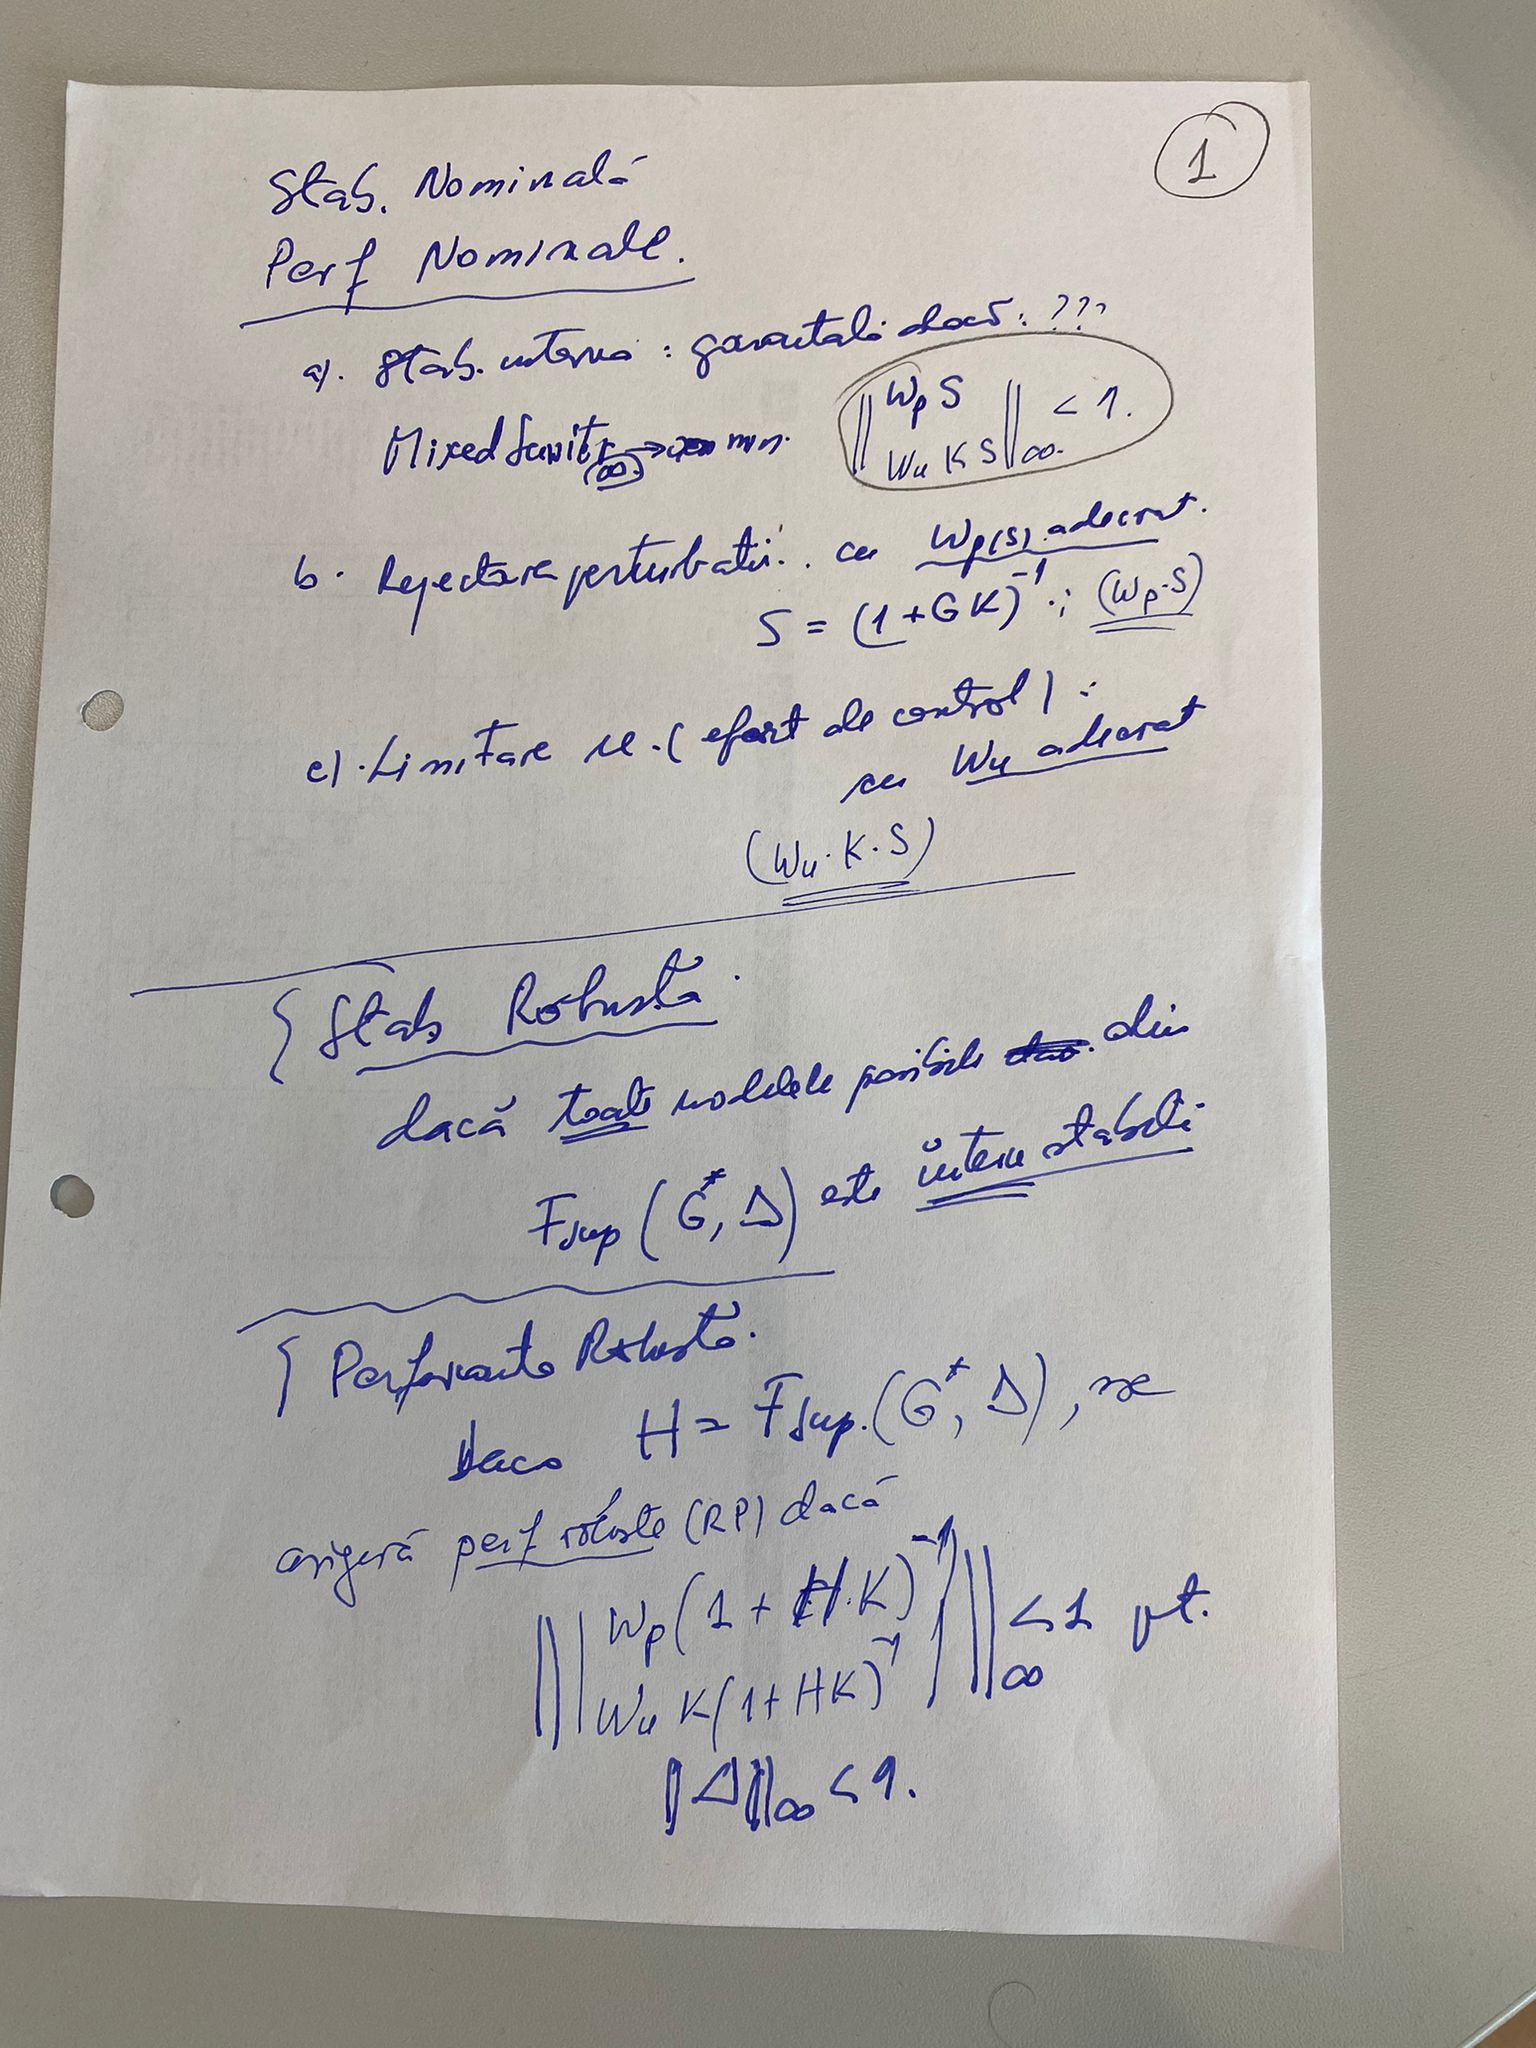 1
Stab. Nominală
Perf Nominale.
a). Stab. internă : garantată dacă : ???
Mixed Sensitiv (∞) → min. || WpS WuKS ||∞ < 1.
b. Rejectare perturbații. cu Wp(s) adecvat.
S = (1+GK)⁻¹ ; (Wp·S)
c). Limitare u (efort de control) :
cu Wu adecvat
(Wu·K·S)
{ Stab Robustă.
dacă toate modelele posibile din
Fsup (G*, Δ) este intern stabili
{ Performanță Robustă.
Dacă H = Fsup.(G*, Δ), se
asigură perf robuste (RP) dacă
|| Wp(1 + H.K)⁻¹
WuK(1+HK)⁻¹ ||∞ < 1 pt.
||Δ||∞ < 1.